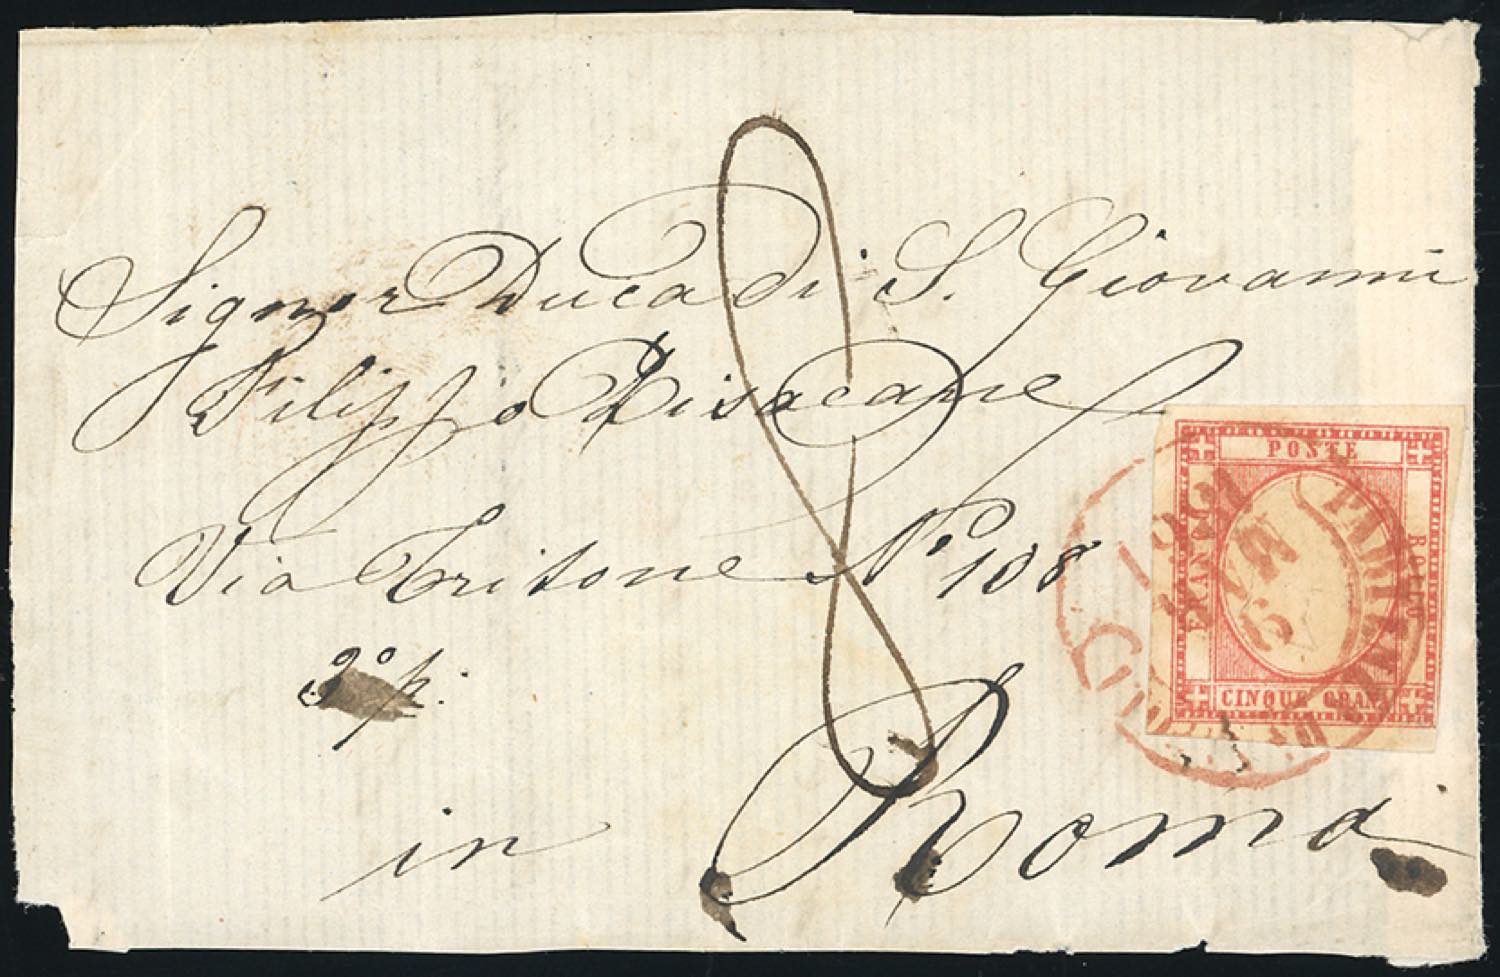 Signor Duca di S. Giovanni
Filippo Pisacane
Via Tritone N.° 108
3° p.
in Roma
8
POSTE
FRANCO
BOLLO
CINQUE GRANA
1861